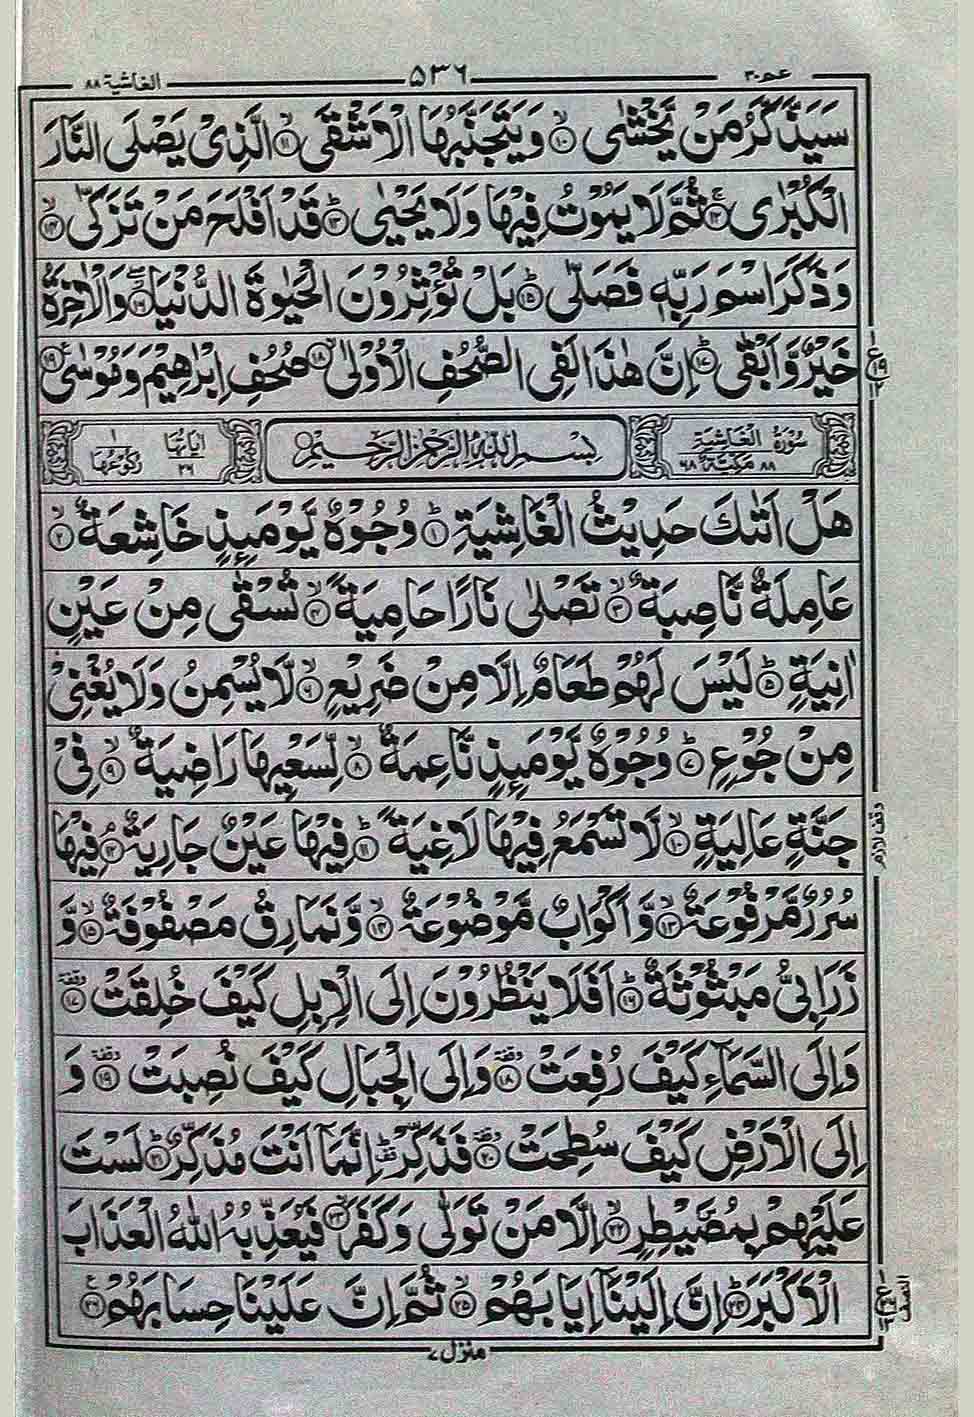 عم ٣٠ ٥٣٦ الغاشية ٨٨
سَيَذَّكَّرُ مَنْ يَّخْشٰى ۙ‏﴿١٠﴾ وَيَتَجَنَّبُهَا الْاَشْقَى ۙ‏﴿١١﴾ الَّذِىْ يَصْلَى النَّارَ
الْكُبْرٰى ۚ‏﴿١٢﴾ ثُمَّ لَا يَمُوْتُ فِيْهَا وَلَا يَحْيٰى ؕ‏﴿١٣﴾ قَدْ اَفْلَحَ مَنْ تَزَكّٰى ۙ‏﴿١٤﴾
وَذَكَرَ اسْمَ رَبِّهٖ فَصَلّٰى ؕ‏﴿١٥﴾ بَلْ تُؤْثِرُوْنَ الْحَيٰوةَ الدُّنْيَا ۖ‏﴿١٦﴾ وَالْاٰخِرَةُ
خَيْرٌ وَّاَبْقٰى ؕ‏﴿١٧﴾ اِنَّ هٰذَا لَفِى الصُّحُفِ الْاُوْلٰى ۙ‏﴿١٨﴾ صُحُفِ اِبْرٰهِيْمَ وَمُوْسٰى‏﴿١٩﴾
ع ١٩
سُوْرَةُ الْغَاشِيَةِ ٨٨ مَكِّيَّةٌ ٦٨ بِسْمِ اللّٰهِ الرَّحْمٰنِ الرَّحِيْمِ اٰيَاتُهَا ٢٦ رُكُوْعُهَا ١
هَلْ اَتٰىكَ حَدِيْثُ الْغَاشِيَةِ ؕ‏﴿١﴾ وُجُوْهٌ يَّوْمَئِذٍ خَاشِعَةٌ ۙ‏﴿٢﴾
عَامِلَةٌ نَّاصِبَةٌ ۙ‏﴿٣﴾ تَصْلٰى نَارًا حَامِيَةً ۙ‏﴿٤﴾ تُسْقٰى مِنْ عَيْنٍ
اٰنِيَةٍ ؕ‏﴿٥﴾ لَيْسَ لَهُمْ طَعَامٌ اِلَّا مِنْ ضَرِيْعٍ ۙ‏﴿٦﴾ لَّا يُسْمِنُ وَلَا يُغْنِىْ
مِنْ جُوْعٍ ؕ‏﴿٧﴾ وُجُوْهٌ يَّوْمَئِذٍ نَّاعِمَةٌ ۙ‏﴿٨﴾ لِّسَعْيِهَا رَاضِيَةٌ ۙ‏﴿٩﴾ فِىْ
جَنَّةٍ عَالِيَةٍ ۙ‏﴿١٠﴾ لَّا تَسْمَعُ فِيْهَا لَاغِيَةً ؕ‏﴿١١﴾ فِيْهَا عَيْنٌ جَارِيَةٌ ۘ‏﴿١٢﴾ فِيْهَا
وقف لازم
سُرُرٌ مَّرْفُوْعَةٌ ۙ‏﴿١٣﴾ وَّاَكْوَابٌ مَّوْضُوْعَةٌ ۙ‏﴿١٤﴾ وَّنَمَارِقُ مَصْفُوْفَةٌ ۙ‏﴿١٥﴾ وَّ
زَرَابِىُّ مَبْثُوْثَةٌ ؕ‏﴿١٦﴾ اَفَلَا يَنْظُرُوْنَ اِلَى الْاِبِلِ كَيْفَ خُلِقَتْ وقفة‏﴿١٧﴾
وَاِلَى السَّمَآءِ كَيْفَ رُفِعَتْ وقفة‏﴿١٨﴾ وَاِلَى الْجِبَالِ كَيْفَ نُصِبَتْ وقفة‏﴿١٩﴾ وَ
اِلَى الْاَرْضِ كَيْفَ سُطِحَتْ وقفة‏﴿٢٠﴾ فَذَكِّرْ ؕ قف اِنَّمَاۤ اَنْتَ مُذَكِّرٌ ؕ‏﴿٢١﴾ لَسْتَ
عَلَيْهِمْ بِمُصَۜيْطِرٍ ۙ‏﴿٢٢﴾ اِلَّا مَنْ تَوَلّٰى وَكَفَرَ ۙ‏﴿٢٣﴾ فَيُعَذِّبُهُ اللّٰهُ الْعَذَابَ
الْاَكْبَرَ ؕ‏﴿٢٤﴾ اِنَّ اِلَيْنَاۤ اِيَابَهُمْ ۙ‏﴿٢٥﴾ ثُمَّ اِنَّ عَلَيْنَا حِسَابَهُمْ‏﴿٢٦﴾
النصف
منزل ٧